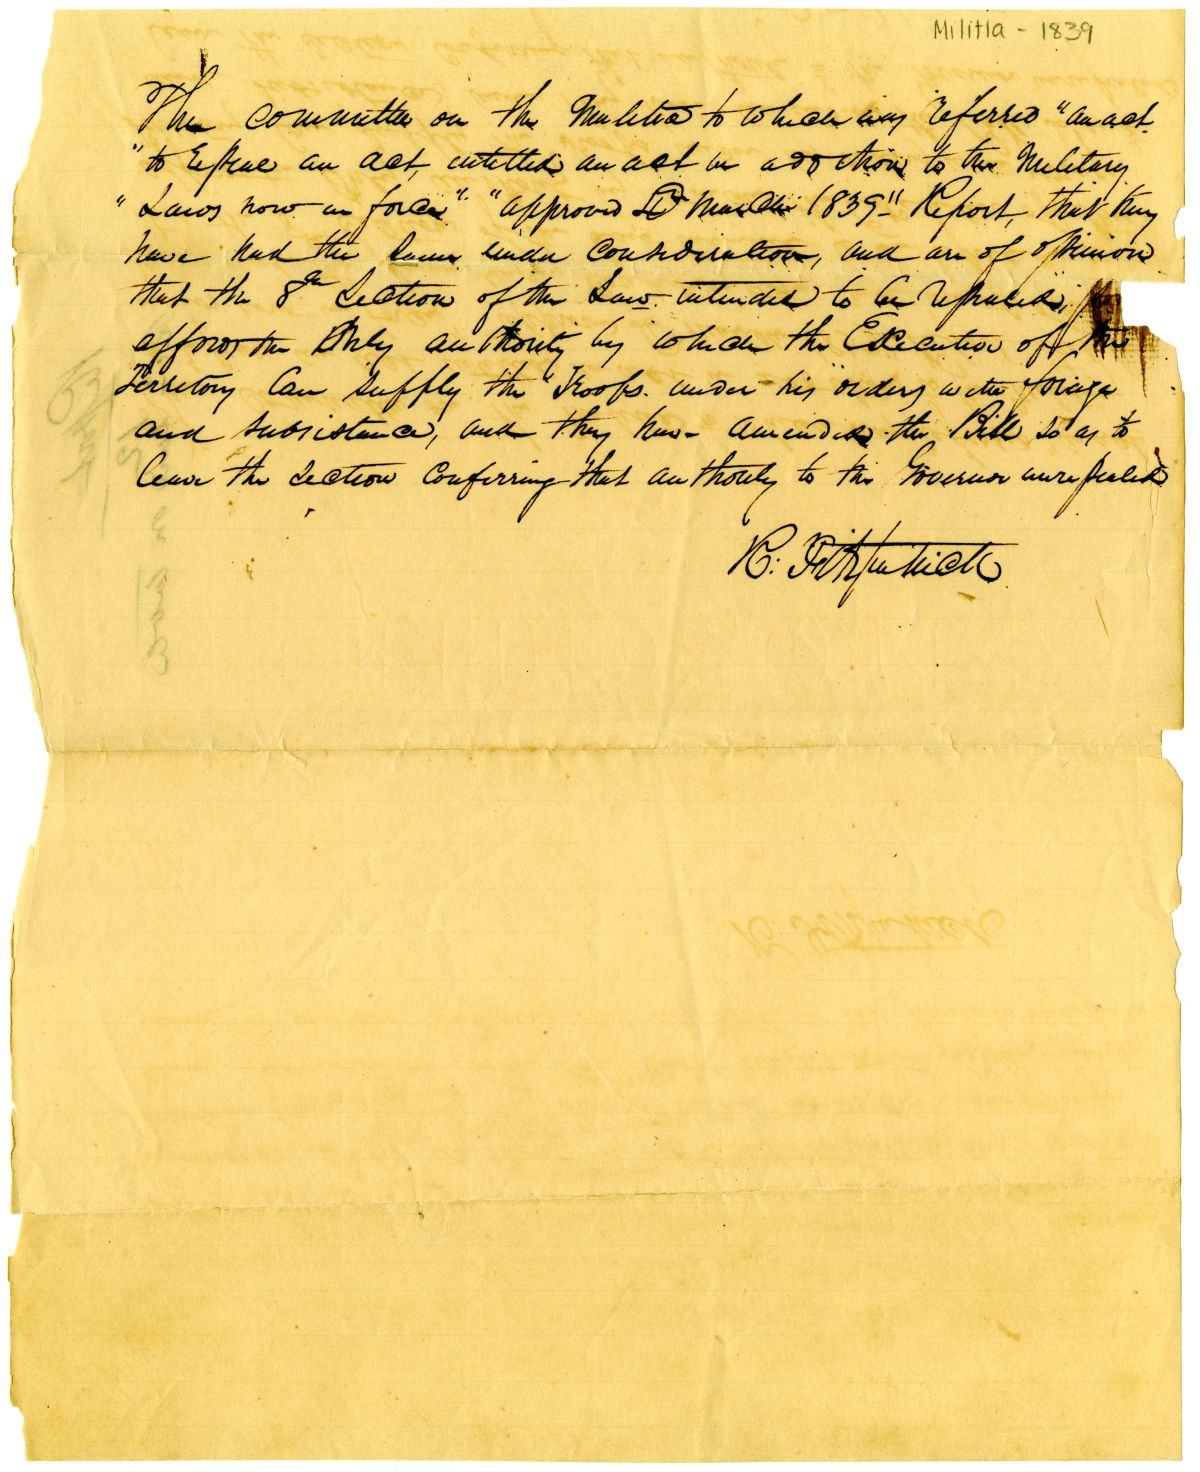 Militia - 1839
The committee on the Militia to which was referred "an act
"to Repeal an act, intitled an act in addition to the Military
"Laws now in force". "approved March 1839" Report, that they
have had the same under consideration, and are of opinion
that the 8th Section of the Law intended to be repealed,
affords the Only authority by which the Executive of the
Territory Can Supply the Troops under his orders with forage
and subsistance, and they have amended the Bill so as to
leave the section conferring that authority to the Governor unrepealed
R: Fitzpatrick